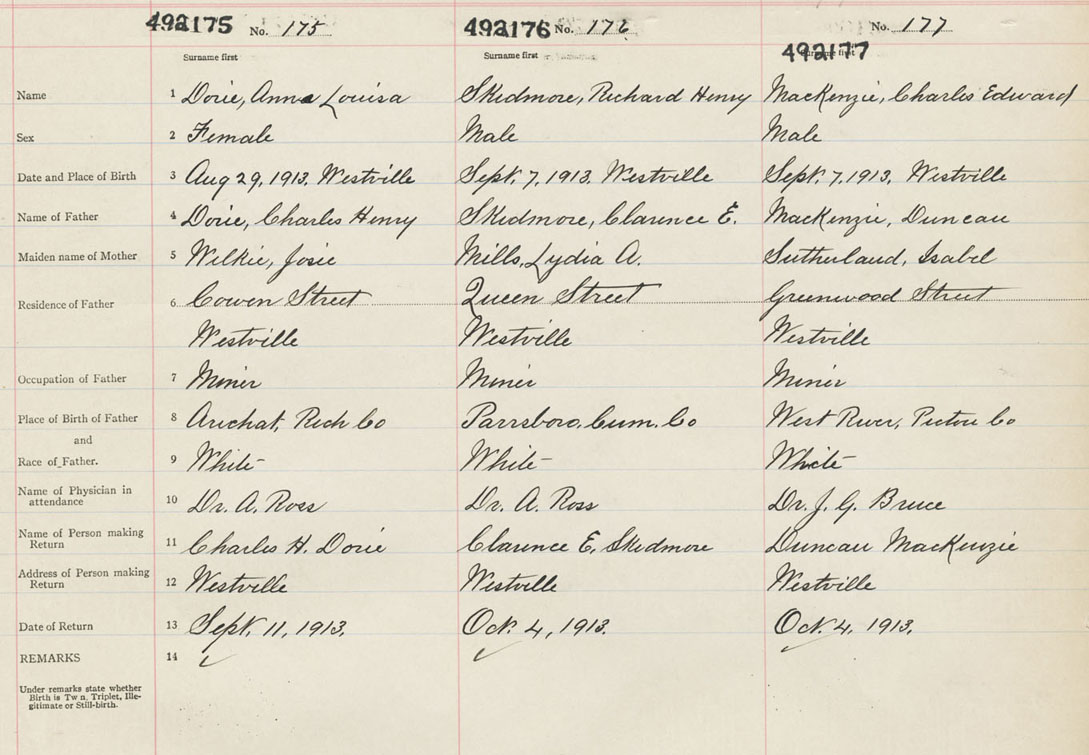 492175 No. 175 492176 No. 176 No. 177
Surname first Surname first Surname first
492177
Name 1 Dorie, Anna Louisa Skidmore, Richard Henry MacKenzie, Charles Edward
Sex 2 Female Male Male
Date and Place of Birth 3 Aug 29, 1913, Westville Sept. 7, 1913, Westville Sept. 7, 1913, Westville
Name of Father 4 Dorie, Charles Henry Skidmore, Clarence E. MacKenzie, Duncan
Maiden name of Mother 5 Wilkie, Josie Mills, Lydia A. Sutherland, Isabel
Residence of Father 6 Cowen Street Queen Street Greenwood Street
Westville Westville Westville
Occupation of Father 7 Miner Miner Miner
Place of Birth of Father 8 Arichat, Rich Co Parrsboro, Cum. Co West River, Pictou Co
and
Race of Father. 9 White White White
Name of Physician in
attendance 10 Dr. A. Ross Dr. A. Ross Dr. J. G. Bruce
Name of Person making
Return 11 Charles H. Dorie Clarence E. Skidmore Duncan MacKenzie
Address of Person making
Return 12 Westville Westville Westville
Date of Return 13 Sept. 11, 1913. Oct. 4, 1913. Oct. 4, 1913.
REMARKS 14
Under remarks state whether
Birth is Tw n, Triplet, Ille-
gitimate or Still-birth.